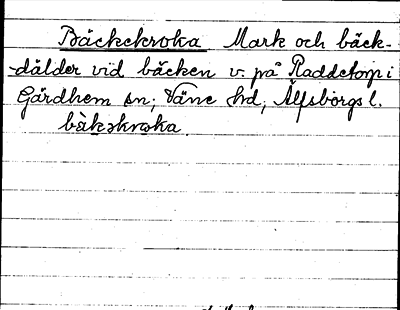 Bäckekroka Mark och bäck-
dälder vid bäcken v. på Raddetorp i
Gärdhem sn; Väne hd, Älfsborgs l.
bàkəkroka.